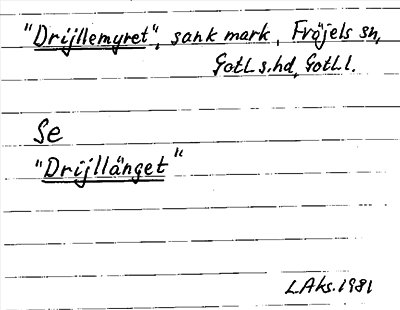 "Drijllemyret", sank mark, Fröjels sn,
Gotl. s. hd, Gotl. l.
Se
"Drijllänget"
LAks. 1981